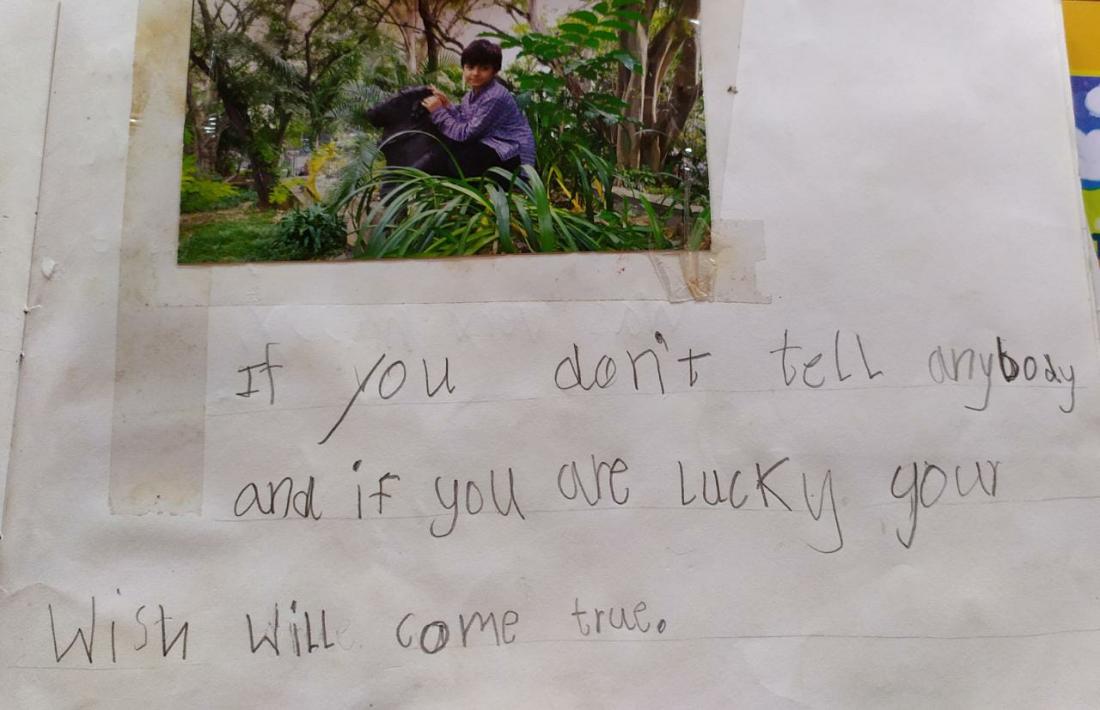 If you don't tell anybody
and if you are lucky your
Wish Will come true.